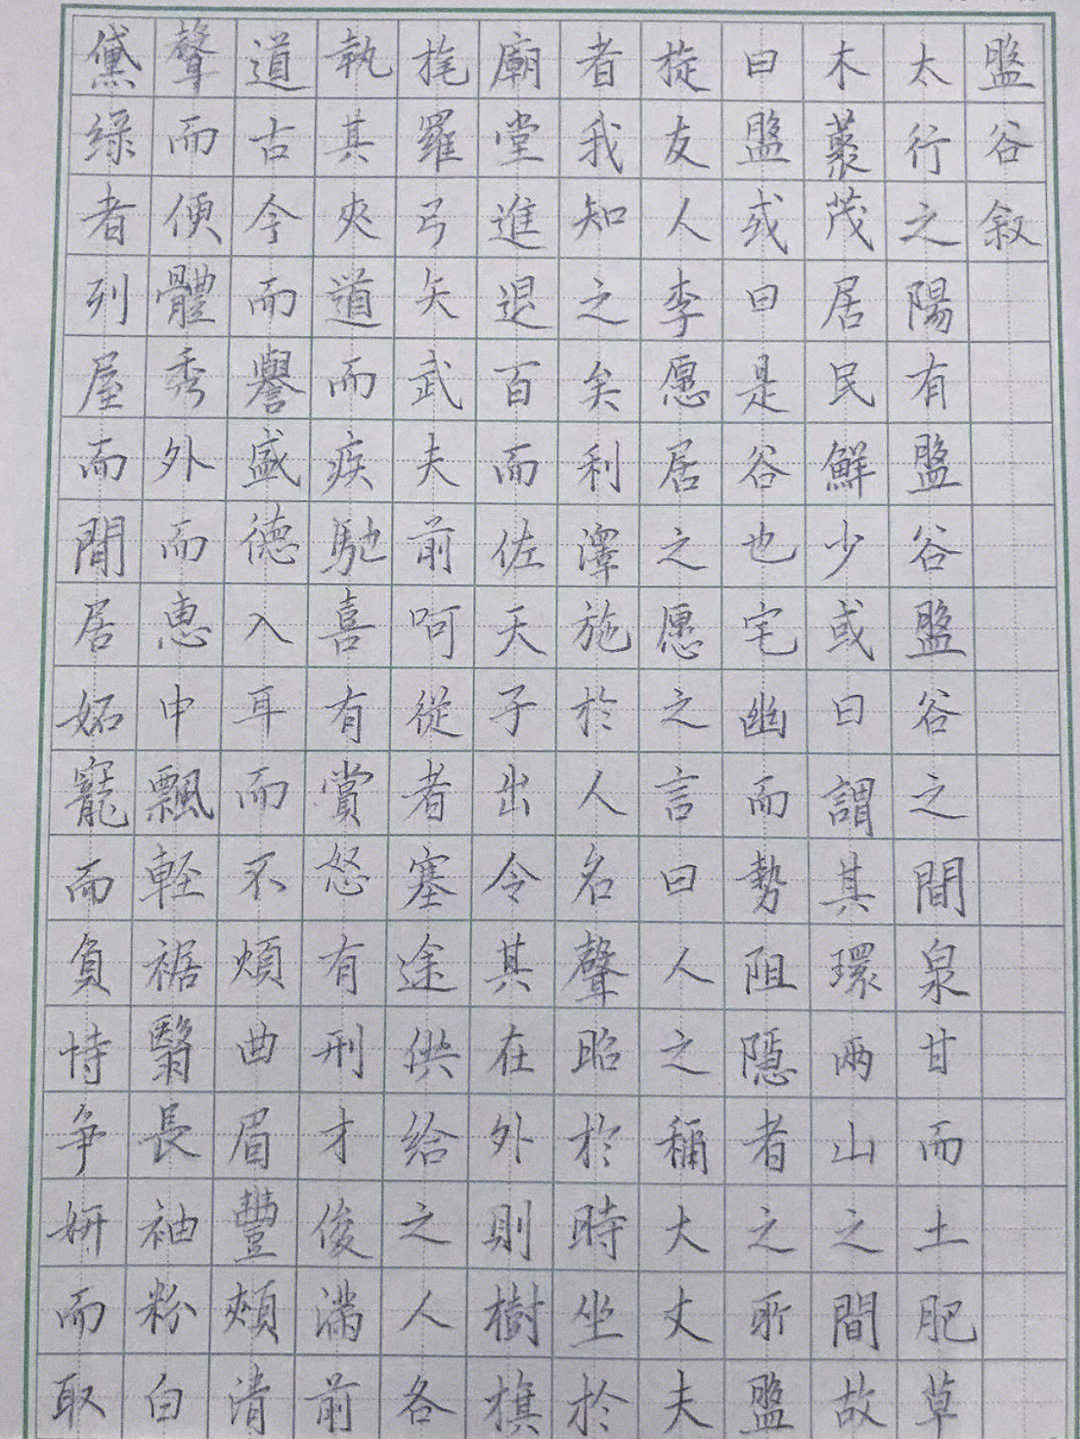 盤谷叙
太行之陽有盤谷盤谷之間泉甘而土肥草
木藂茂居民鮮少或曰謂其環兩山之間故
曰盤或曰是谷也宅幽而勢阻隱者之所盤
旋友人李愿居之愿之言曰人之稱大丈夫
者我知之矣利澤施於人名聲昭於時坐於
廟堂進退百而佐天子出令其在外則樹旗
旄羅弓矢武夫前呵從者塞途供給之人各
執其夾道而疾馳喜有賞怒有刑才俊滿前
道古今而譽盛德入耳而不煩曲眉豐頰清
聲而便體秀外而惠中飄輕裾翳長袖粉白
黛綠者列屋而閒居妬寵而負恃爭妍而取